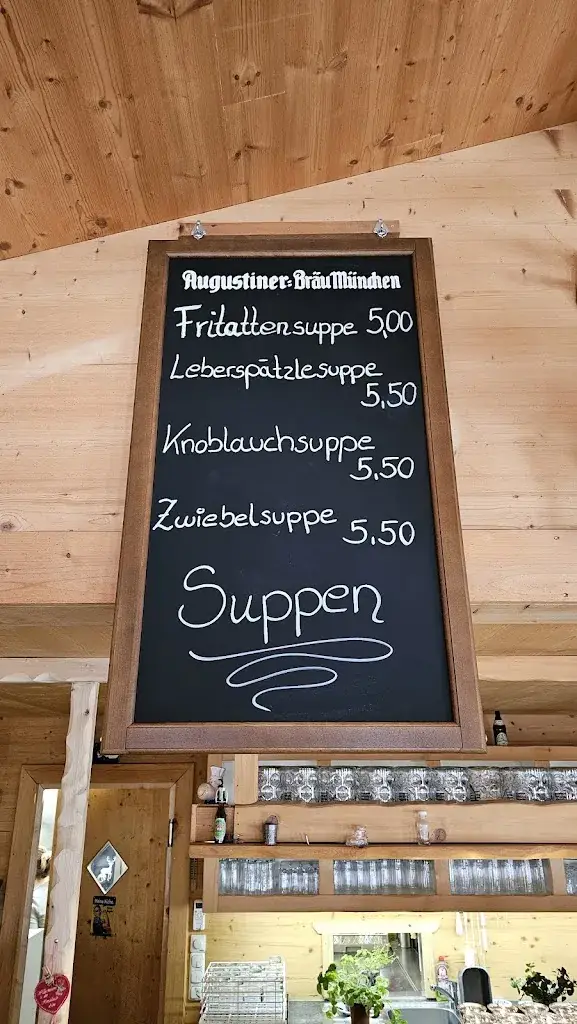 Augustiner-Bräu München
Fritattensuppe 5,00
Leberspätzlesuppe
5,50
Knoblauchsuppe
5.50
Zwiebelsuppe
5.50
Suppen